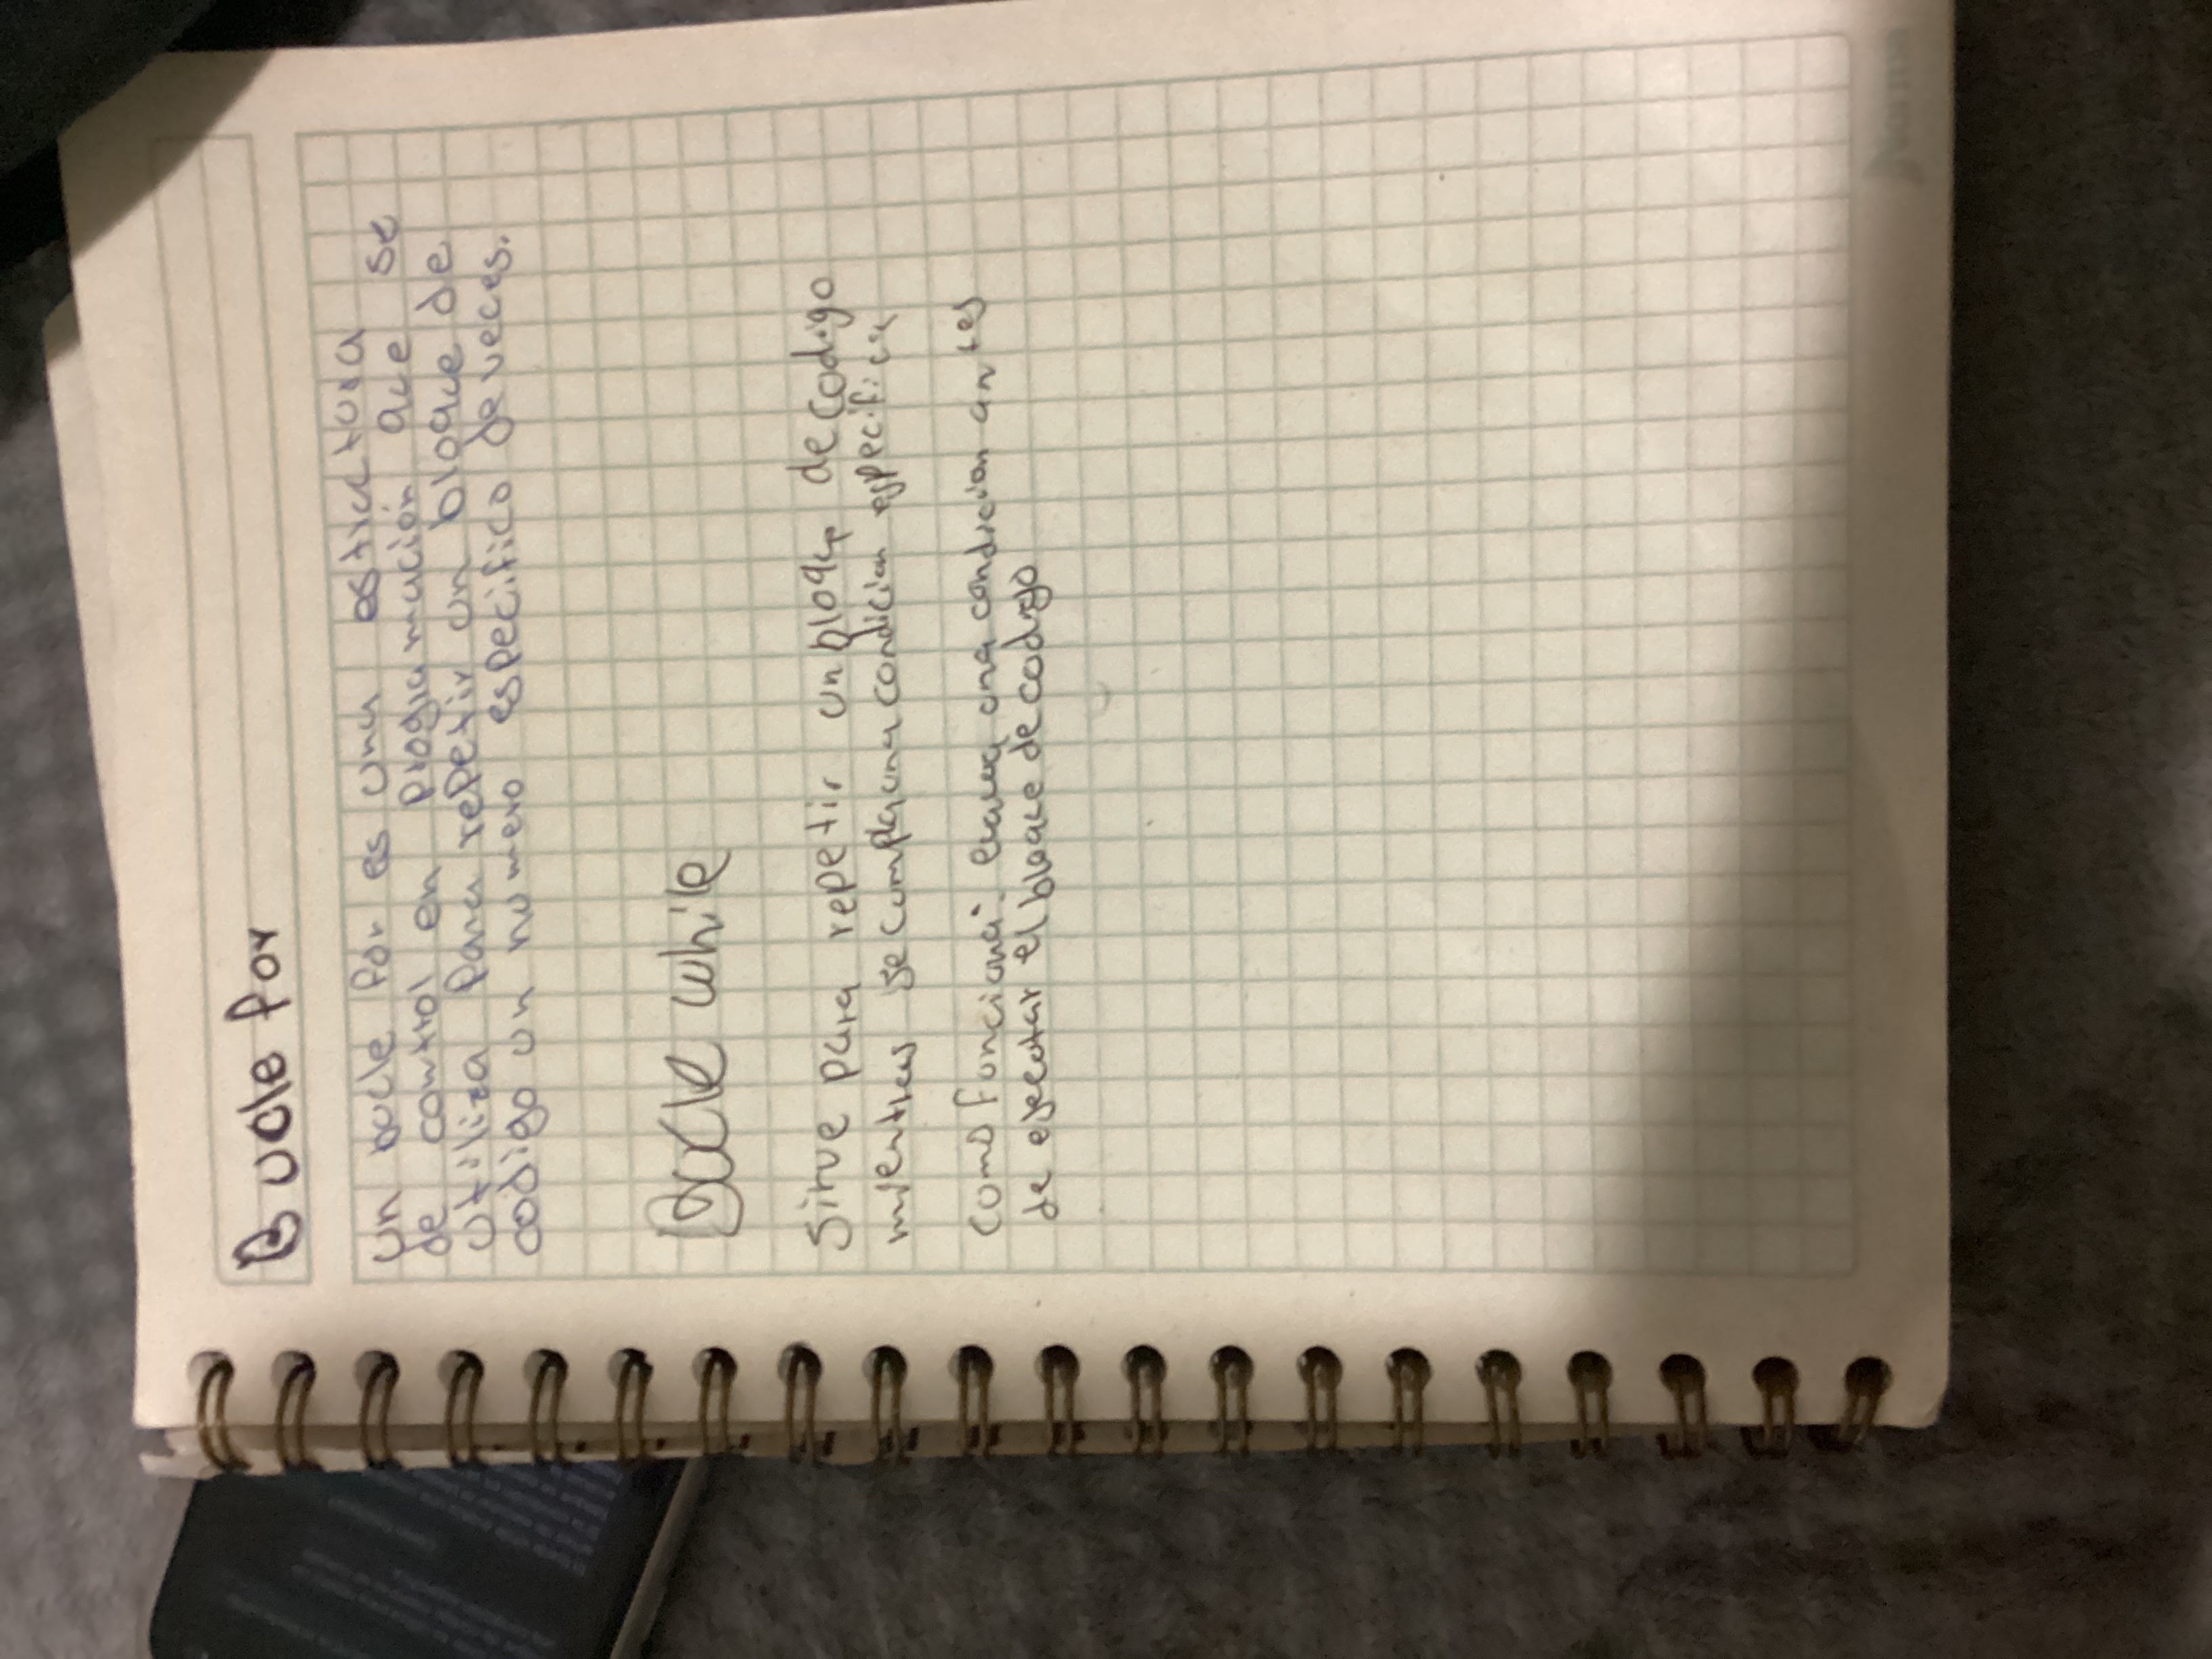 Bucle for
un bucle for es una estructura
de control en programación que se
utiliza para repetir un bloque de
codigo un numero especifico de veces.
Bucle while
Sirve para repetir un bloque de codigo
mientras se cumpla una condicion especifica
como funciona: evalua una condicion antes
de ejecutar el bloque de codigo